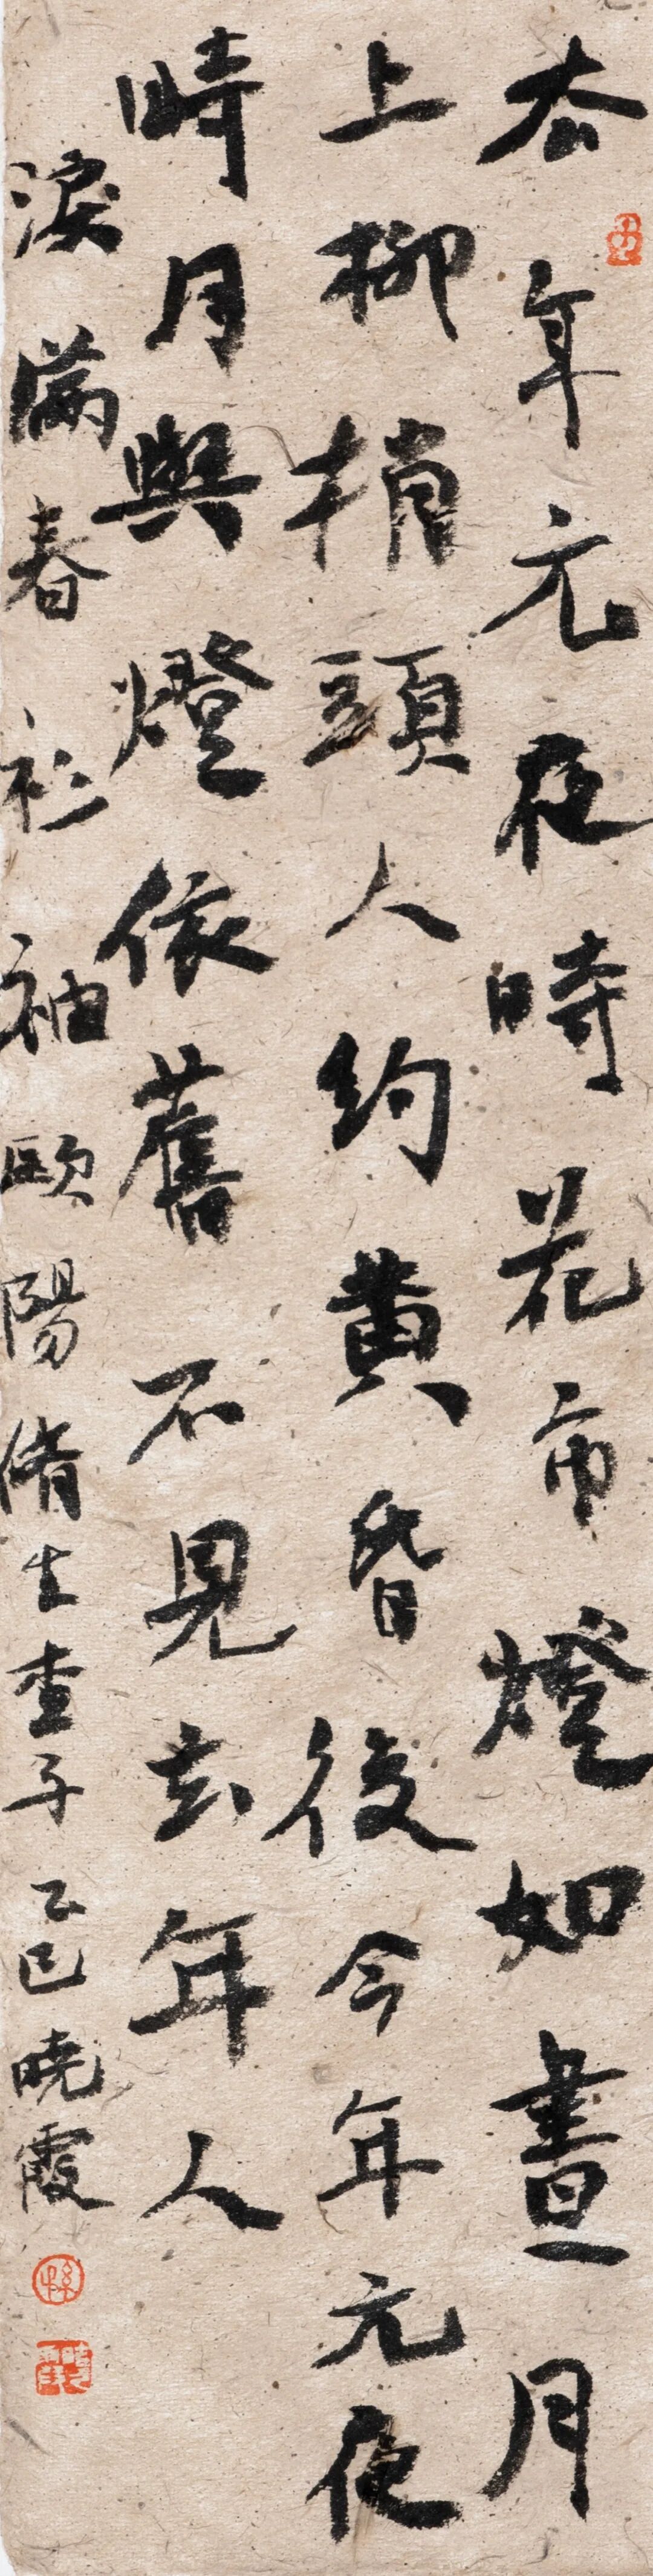 去年元夜時花市燈如晝月
上柳梢頭人約黄昏後今年元夜
時月與燈依舊不見去年人
淚滿春衫袖歐陽脩生查子乙巳曉霞